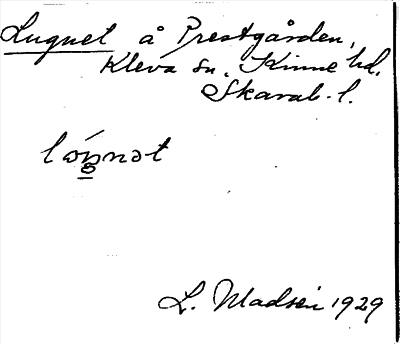 Lugnet å Prestgården,
Kleva sn. Kinne hd.
Skarab. l.
L. Madsen 1929